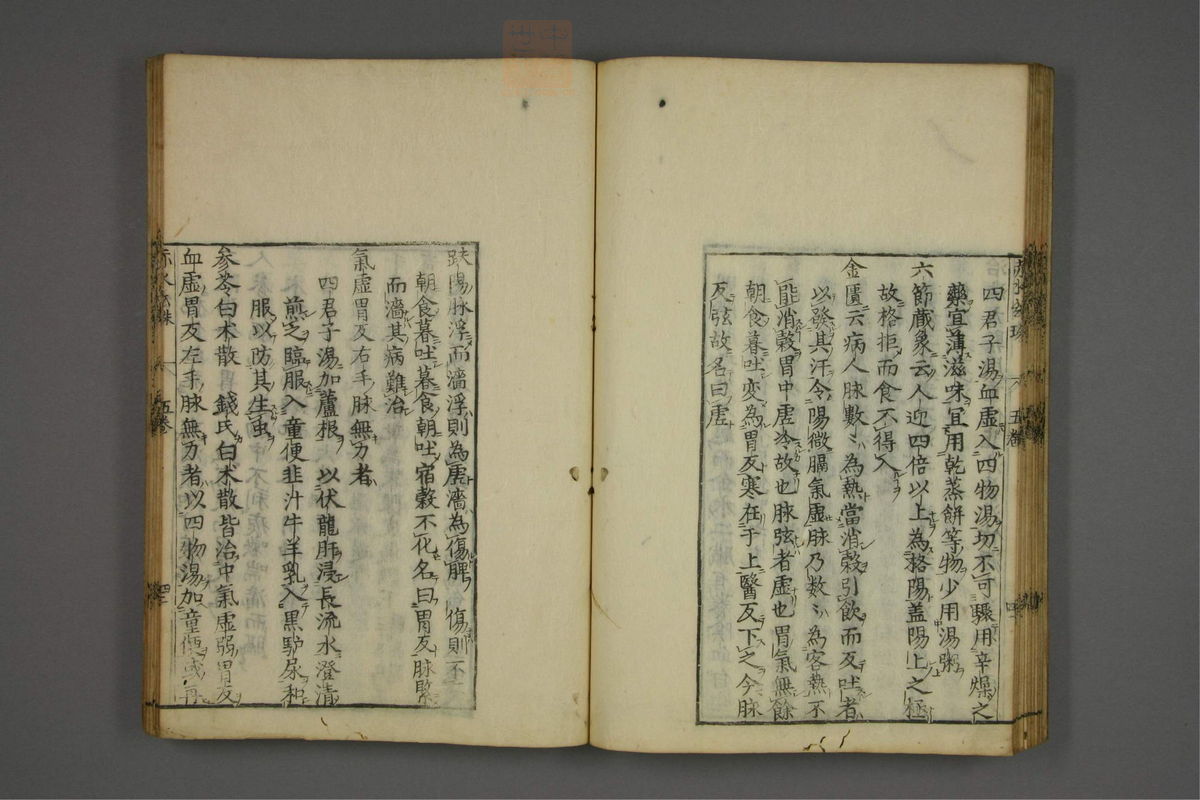 四君子湯血虚入四物湯切不可驟用辛燥之
藥宜薄滋味宜用乾蒸餅等物少用湯粥
六節藏象云人迎四倍以上為格陽盖陽上之極
故格拒而食不得入
金匱云病人脉數〻為熱當消穀引飲而反吐者
以發其汗令陽微膈氣虚脉乃数〻為客熱不
能消穀胃中虚冷故也脉弦者虚也胃氣無餘
朝食暮吐变為胃反寒在于上醫反下之今脉
反弦故名曰虚
趺陽脉浮而濇浮則為虚濇為傷脾傷則不
朝食暮吐暮食朝吐宿穀不化名曰胃反脉緊
而濇其病難治
氣虚胃反右手脉無力者
四君子湯加蘆根以伏龍肝浸長流水澄清
煎之臨服入童便韭汁牛羊乳入黒驢尿和
服以防其生虫
参苓白术散錢氏白术散皆治中氣虚弱胃反
血虚胃反左手脉無力者以四物湯加童便或
赤水玄珠
五卷
五卷